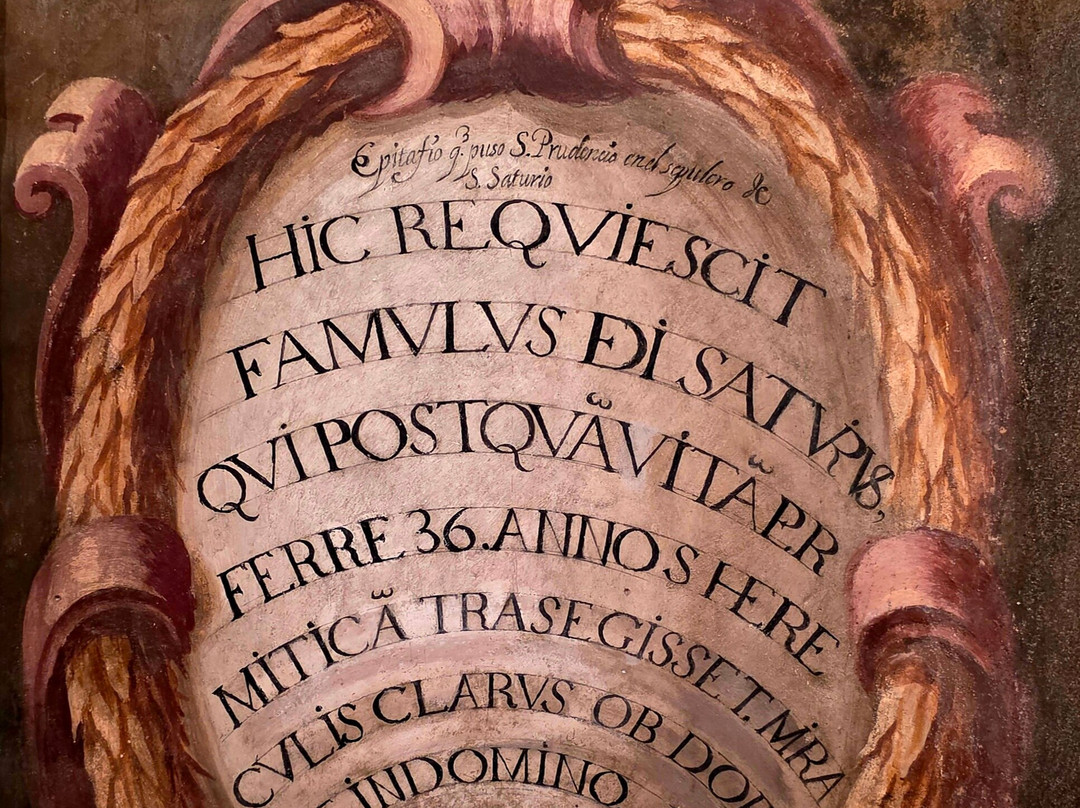 Epitafio q̃ puso S. Prudencio en el sepulcro de
S. Saturio
HiC REQViESCiT
FAMVLVS ĐI SATVRiVS,
QVi POSTQVÃ ViTÃ PR
FERRE 36. ANNOS HERE
MiTiCÃ TRASEGiSSET. MiRA
CVLiS CLARVS OB DOR
iNDOMiNO